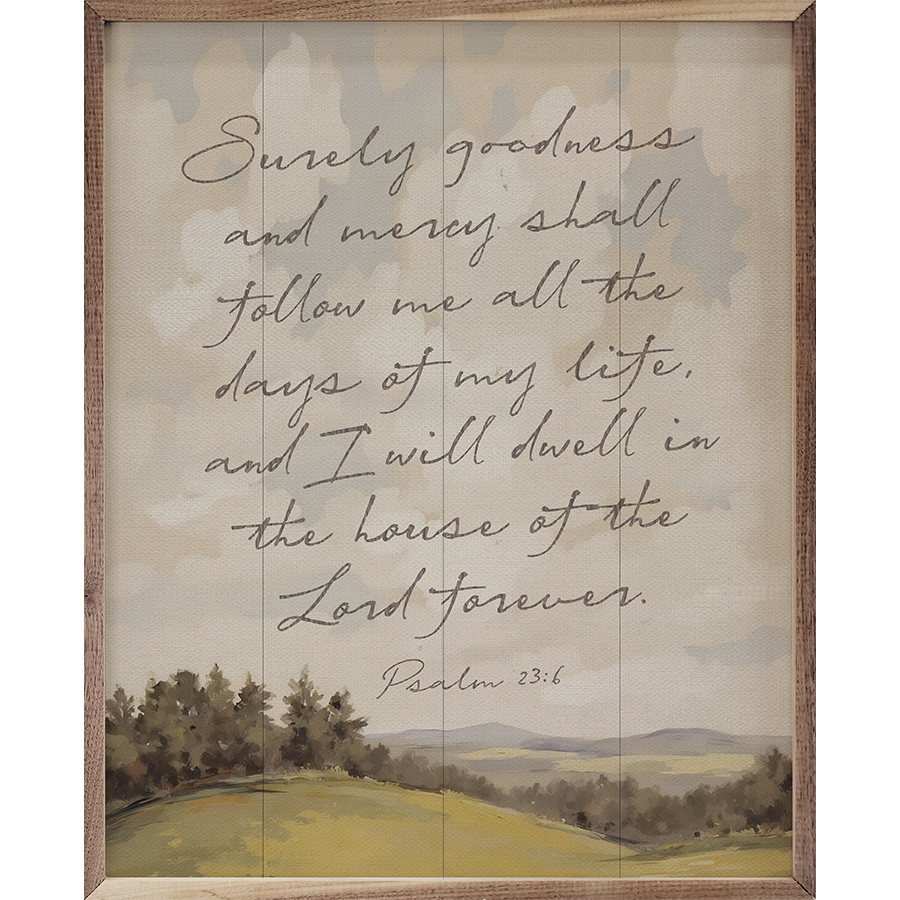 Surely goodness
and mercy shall
follow me all the
days of my life,
and I will dwell in
the house of the
Lord forever.
Psalm 23:6